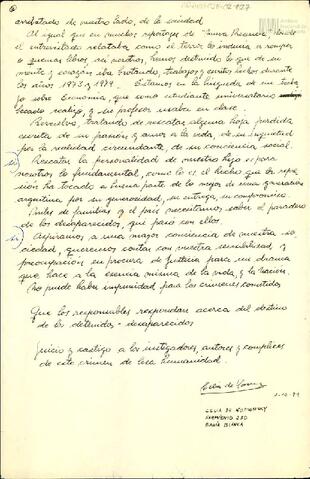 arrebatado de nuestro lado, de la sociedad
Al igual que en muchos reportajes de donde
el entrevistado relataba, como el terror lo indujo a romper
o quemar libros, así nosotros, hemos destruido lo que de su
mente y corazón iba brotando, trabajos y escritos hechos durante
los años 1973 y 1974. Estamos en la búsqueda de un traba-
jo sobre Economía, que como estudiante universitario
Decardo realizó, y su profesor usaba en clase.
tratando de rescatar alguna hoja perdida
secreta de su pasión y amor a la vida, de su inquietud
por la realidad circundante, de su conciencia social.
Rescatar la personalidad de nuestro hijo es para
nosotros lo fundamental, como lo es el hecho que la repre-
sión ha tocado a buena parte de lo mejor de una generación
argentina por su generosidad, su entrega, su compromiso.
Miles de familias y el país necesitamos saber el paradero
de los desaparecidos, qué pasó con ellos.
Aspiramos a una mayor conciencia de nuestra so-
ciedad, queremos contar con vuestra sensibilidad y
preocupación en procura de justicia para un drama
que hace a la esencia misma de la vida, y la Nación.
No puede haber impunidad para los crímenes cometidos
Que los responsables respondan acerca del destino
de los detenidos-desaparecidos
Juicio y castigo a los instigadores, autores y cómplices
de este crimen de lesa humanidad.
CELIA DE
SARMIENTO 230
BAHÍA BLANCA